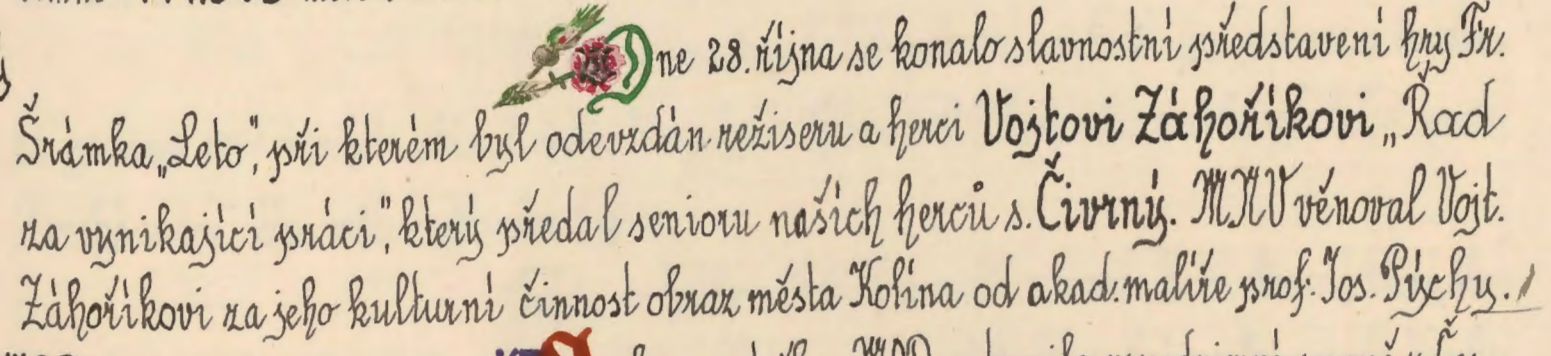 Dne 28. října se konalo slavnostní představení hry Fr.
Šrámka „Leto", při kterém byl odevzdán režiseru a herci Vojtovi Záhoříkovi „Řad
za vynikající práci", který předal senioru našich herců s. Čivrný. MNV věnoval Vojt.
Záhoříkovi za jeho kulturní činnost obraz města Kolína od akad. malíře prof. Jos. Pýchy.